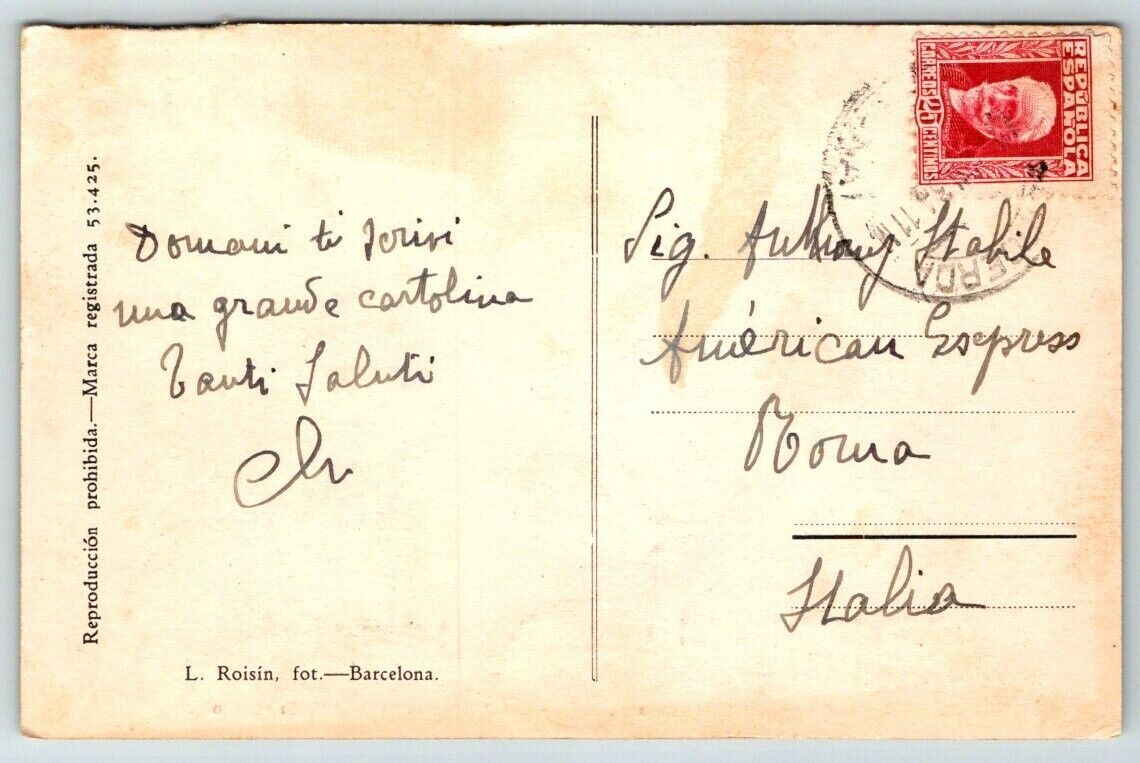 Reproducción prohibida.—Marca registrada 53.425.
Domani ti scrivi
una grande cartolina
Tanti Saluti
L. Roisín, fot.—Barcelona.
REPÚBLICA
ESPAÑOLA
CORREOS 25 CENTIMOS
Sig. Anthony Stabile
Américan Esspress
Roma
Italia